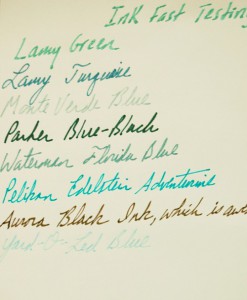 Ink Fast Testing
Lamy Green
Lamy Turquise
Monte Verde Blue
Parker Blue-Black
Waterman Florida Blue
Pelikan Edelstein Adventurine
Aurora Black Ink, which is
Yard-O-Led Blue